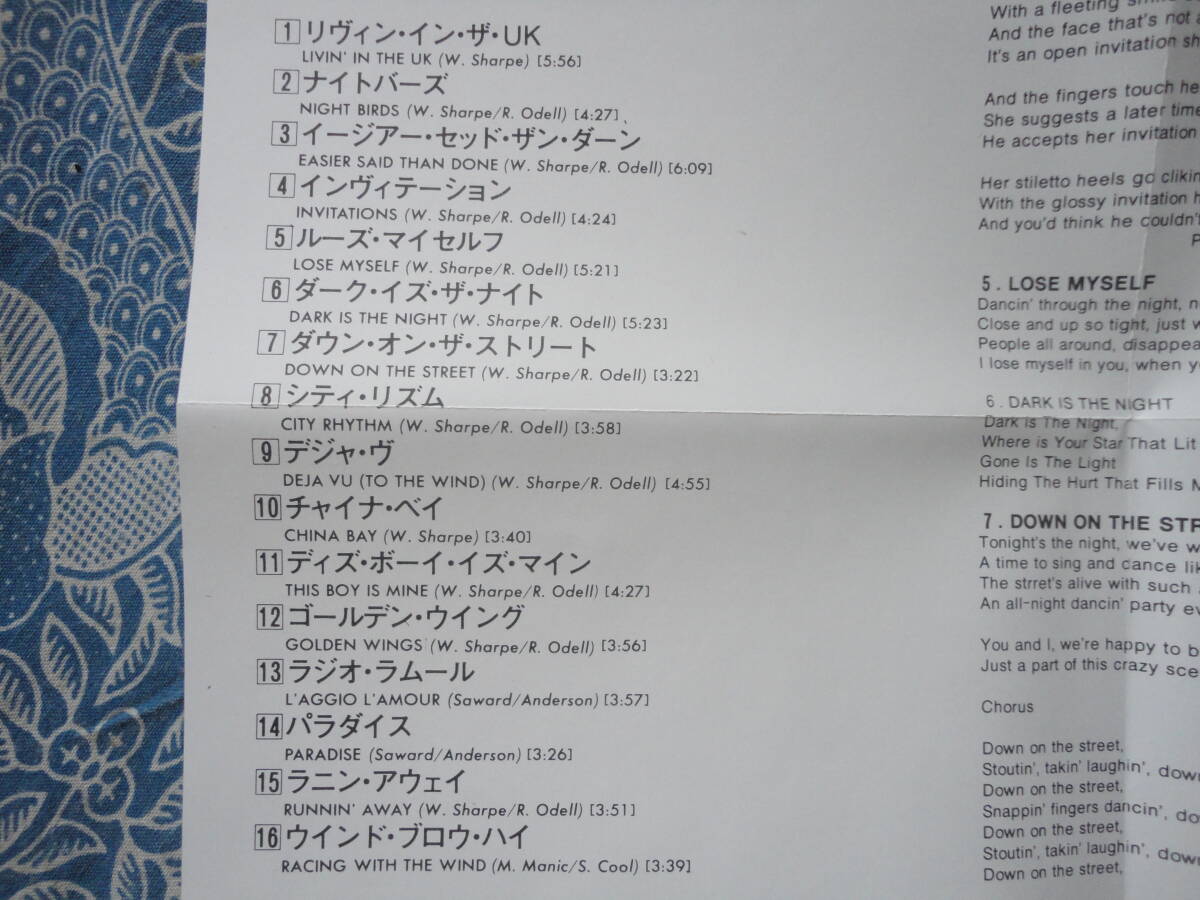 1 リヴィン・イン・ザ・UK
LIVIN' IN THE UK (W. Sharpe) [5:56]
2 ナイトバーズ
NIGHT BIRDS (W. Sharpe/R. Odell) [4:27]
3 イージアー・セッド・ザン・ダーン
EASIER SAID THAN DONE (W. Sharpe/R. Odell) [6:09]
4 インヴィテーション
INVITATIONS (W. Sharpe/R. Odell) [4:24]
5 ルーズ・マイセルフ
LOSE MYSELF (W. Sharpe/R. Odell) [5:21]
6 ダーク・イズ・ザ・ナイト
DARK IS THE NIGHT (W. Sharpe/R. Odell) [5:23]
7 ダウン・オン・ザ・ストリート
DOWN ON THE STREET (W. Sharpe/R. Odell) [3:22]
8 シティ・リズム
CITY RHYTHM (W. Sharpe/R. Odell) [3:58]
9 デジャ・ヴ
DEJA VU (TO THE WIND) (W. Sharpe/R. Odell) [4:55]
10 チャイナ・ベイ
CHINA BAY (W. Sharpe) [3:40]
11 ディズ・ボーイ・イズ・マイン
THIS BOY IS MINE (W. Sharpe/R. Odell) [4:27]
12 ゴールデン・ウイング
GOLDEN WINGS (W. Sharpe/R. Odell) [3:56]
13 ラジオ・ラムール
L'AGGIO L'AMOUR (Saward/Anderson) [3:57]
14 パラダイス
PARADISE (Saward/Anderson) [3:26]
15 ラニン・アウェイ
RUNNIN' AWAY (W. Sharpe/R. Odell) [3:51]
16 ウインド・ブロウ・ハイ
RACING WITH THE WIND (M. Manic/S. Cool) [3:39]
With a fleeting
And the face that's not
It's an open invitation
And the fingers touch
She suggests a later
He accepts her invitation
Her stiletto heels go
With the glossy invitation
And you'd think he couldn't
5. LOSE MYSELF
Dancin' through the night,
Close and up so tight, just
People all around,
I lose myself in you, when
6. DARK IS THE NIGHT
Dark Is The Night,
Where is Your Star That Lit
Gone Is The Light
Hiding The Hurt That Fills
7. DOWN ON THE
Tonight's the night, we've
A time to sing and dance
The strret's alive with such
An all-night dancin' party
You and I, we're happy to
Just a part of this crazy
Chorus
Down on the street,
Stoutin', takin' laughin',
Down on the street,
Snappin' fingers dancin',
Down on the street,
Stoutin', takin' laughin',
Down on the street,